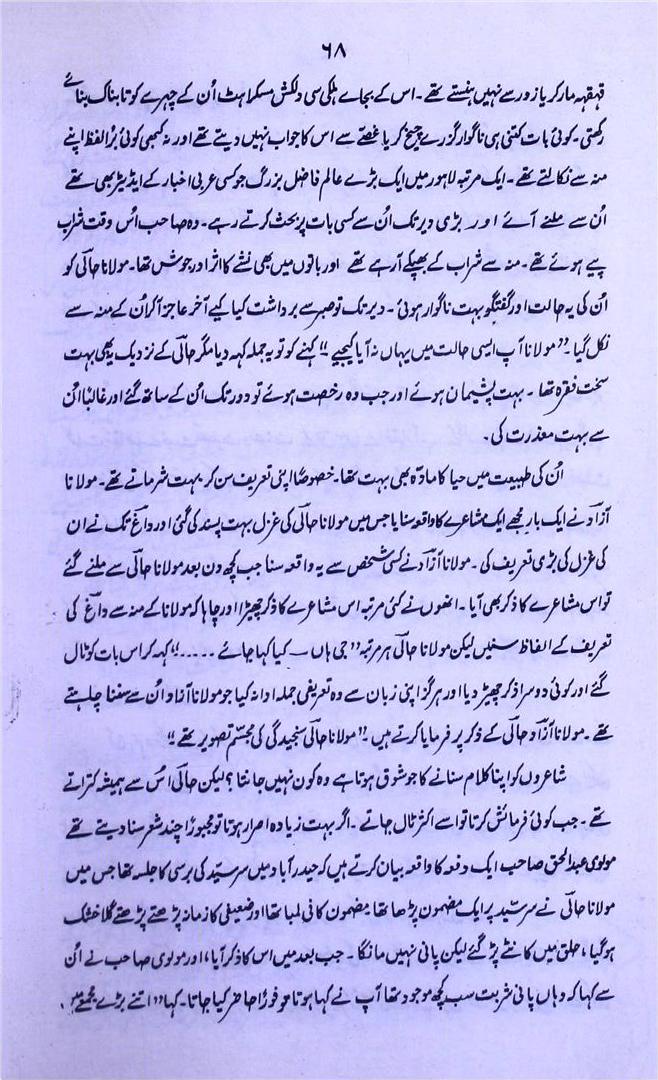 ۶۸
قہقہہ مار کر یا زور سے نہیں ہنستے تھے۔ اس کے بجاے ہلکی سی دلکش مسکراہٹ اُن کے چہرے کو تابناک بنائے
رکھتی۔ کوئی بات کتنی ہی ناگوار گزرے چیخ کر یا غصّے سے اس کا جواب نہیں دیتے تھے اور نہ کبھی کوئی بُرا لفظ اپنے
منہ سے نکالتے تھے۔ ایک مرتبہ لاہور میں ایک بڑے عالم فاضل بزرگ جو کسی عربی اخبار کے ایڈیٹر بھی تھے
اُن سے ملنے آئے اور بڑی دیر تک اُن سے کسی بات پر بحث کرتے رہے۔ وہ صاحب اُس وقت شراب
پیے ہوئے تھے۔ منہ سے شراب کے بھپکے آرہے تھے اور باتوں میں بھی نشّے کا اثر اور جوش تھا۔ مولانا حالؔی کو
اُن کی یہ حالت اور گفتگو بہت ناگوار ہوئی۔ دیر تک تو صبر سے برداشت کیا کیے آخر عاجز آکر اُن کے منہ سے
نکل گیا۔ "مولانا آپ ایسی حالت میں یہاں نہ آیا کیجیے!! کہنے کو تو یہ جملہ کہہ دیا مگر حالؔی کے نزدیک یہ بھی بہت
سخت فقرہ تھا۔ بہت پشیمان ہوئے اور جب وہ رخصت ہوئے تو دور تک اُن کے ساتھ گئے اور غالباً اُن
سے بہت معذرت کی۔
اُن کی طبیعت میں حیا کا مادّہ بھی بہت تھا۔ خصوصاً اپنی تعریف سن کر بہت شرماتے تھے۔ مولانا
آزاؔد نے ایک بار مجھے ایک مشاعرے کا واقعہ سنایا جس میں مولانا حالؔی کی غزل بہت پسند کی گئی اور داغؔ تک نے ان
کی غزل کی بڑی تعریف کی۔ مولانا آزاؔد نے کسی شخص سے یہ واقعہ سنا جب کچھ دن بعد مولانا حالؔی سے ملنے گئے
تو اس مشاعرے کا ذکر بھی آیا۔ انھوں نے کئی مرتبہ اس مشاعرے کا ذکر چھیڑا اور چاہا کہ مولانا کے منہ سے داغؔ کی
تعریف کے الفاظ سنیں لیکن مولانا حالؔی ہر مرتبہ "جی ہاں — کیا کہا جائے ۔۔۔۔۔!! کہہ کر اس بات کو ٹال
گئے اور کوئی دوسرا ذکر چھیڑ دیا اور ہرگز اپنی زبان سے وہ تعریفی جملہ ادا نہ کیا جو مولانا آزاد اُن سے سننا چاہتے
تھے۔ مولانا آزاؔد حالؔی کے ذکر پر فرمایا کرتے ہیں۔ "مولانا حالؔی سنجیدگی کی مجسّم تصویر تھے!!
شاعروں کو اپنا کلام سنانے کا جو شوق ہوتا ہے وہ کون نہیں جانتا؟ لیکن حالؔی اُس سے ہمیشہ کتراتے
تھے۔ جب کوئی فرمائش کرتا تو اسے اکثر ٹال جاتے۔ اگر بہت زیادہ اصرار ہوتا تو مجبوراً چند شعر سنا دیتے تھے
مولوی عبدالحق صاحب ایک دفعہ کا واقعہ بیان کرتے ہیں کہ حیدرآباد میں سرسیّد کی برسی کا جلسہ تھا جس میں
مولانا حالؔی نے سرسیّد پر ایک مضمون پڑھا تھا مضمون کافی لمبا تھا اور ضعیفی کا زمانہ پڑھتے پڑھتے گلا خشک
ہوگیا، حلق میں کانٹے پڑ گئے لیکن پانی نہیں مانگا۔ جب بعد میں اس کا ذکر آیا، اور مولوی صاحب نے اُن
سے کہا کہ وہاں پانی شربت سب کچھ موجود تھا آپ نے کہا ہوتا تو فوراً حاضر کیا جاتا۔ کہا "اتنے بڑے مجمعے میں